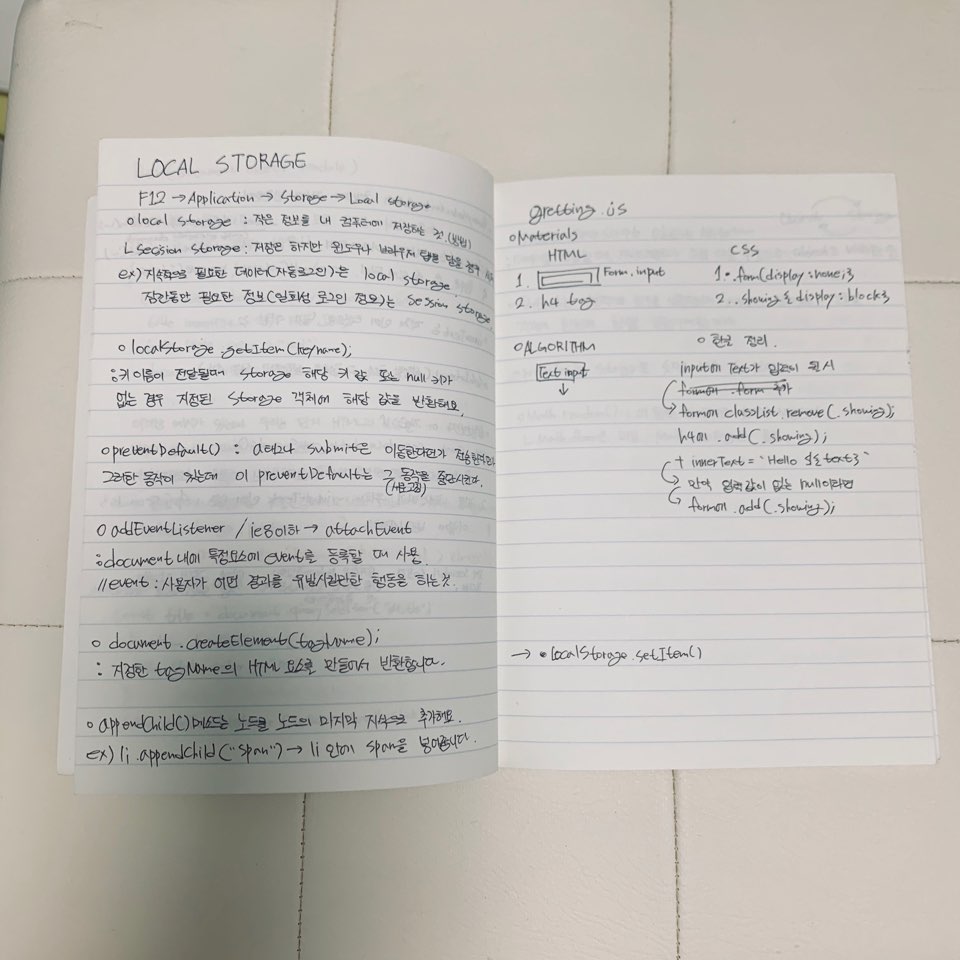 LOCAL STORAGE
F12 → Application → Storage → Local storage
o local storage : 작은 정보를 내 컴퓨터에 저장하는 것.(방법)
ㄴ Session storage : 저장은 하지만 윈도우나 브라우저 탭을 닫을 경우
ex) 지속적으로 필요한 데이터(자동로그인)는 local storage,
잠깐동안 필요한 정보(일회성 로그인 정보)는 session storage
o localStorage.getItem(keyname);
: 키 이름이 전달될때 storage 해당 키 값 또는 null 키가
없는 경우 지정된 Storage 객체에 해당 값을 반환해요.
o preventDefault() : a태그나 submit은 이동한다던가 전송한다
그러한 동작이 있는데 이 preventDefault는 그 동작을 중단시킨다.
(새로고침)
o addEventListener / ie8이하 → attachEvent
: document 내에 특정요소에 event를 등록할 때 사용.
// event : 사용자가 어떤 결과를 유발시킬만한 행동을 하는것.
o document.createElement(tagName);
: 지정한 tagName의 HTML 요소를 만들어서 반환합니다.
o appendChild() 메소드는 노드를 노드의 마지막 자식으로 추가해요.
ex) li.appendChild("span") → li 안에 span을 넣어줍니다.
gretting.js
o Materials
HTML CSS
1. Form, input 1. .form{display:none;}
2. h4 tag 2. .showing { display : block}
o ALGORITHM o 한글 정리.
Text input ↓
input에 Text가 입력이 됐 시
form에 .form 추가
→ form에 classList.remove(.showing);
h4에 .add(.showing);
+ innerText = `Hello ${text}`
→ 만약 입력값이 없는 null이라면
form에 .add(.showing);
→ • localStorage.setItem()